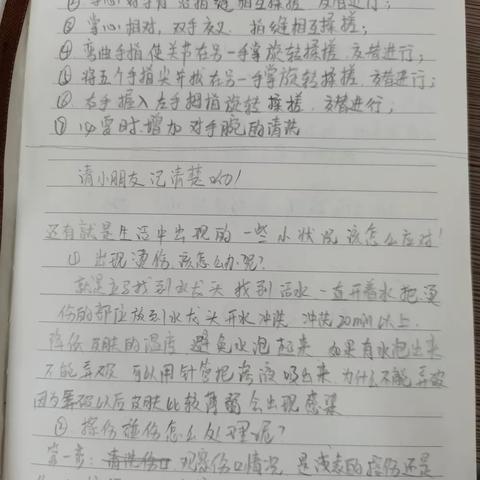 ② 掌心对手背沿指缝相互揉搓，交替进行；
③ 掌心相对，双手交叉，指缝相互揉搓；
④ 弯曲手指使关节在另一手掌旋转揉搓，交替进行；
⑤ 将五个手指尖并拢在另一手掌旋转揉搓，交替进行；
⑥ 右手握入左手拇指旋转揉搓，交替进行；
⑦ 必要时，增加对手腕的清洗
请小朋友记清楚哟！
还有就是生活中出现的一些小状况该怎么应对！
① 出现烫伤，该怎么办呢？
就是立马找到水龙头 找到活水 一直开着水把烫
伤的部位放到水龙头开水冲洗 冲洗20min以上.
降低皮肤的温度 避免水泡起来 如果有水泡出来
不能弄破 可以用针管把液吸出来 为什么不能弄破
因为弄破以后皮肤比较薄弱会出现感染
② 擦伤碰伤怎么处理呢？
第一步：清洗伤口 观察伤口情况 是浅表的擦伤还是